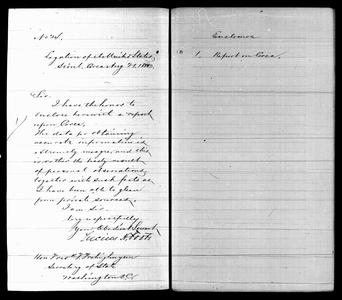 No 24.
Legation of the United States,
Seoul, Corea Aug 21, 188
Sir:
I have the honor to
enclose herewith a report
upon Corea.
The data for obtaining
accurate information is
extremely meagre, and this
is rather the result
of personal observations,
together with such facts as
I have been able to glean
from private sources.
I am Sir.
Very respectfully,
Your Obedient Servant
Lucius H. Foote
Hon. Fredk T. Frelinghuysen
Secretary of State
Washington D.C.
Enclosure
1. Report on Corea.